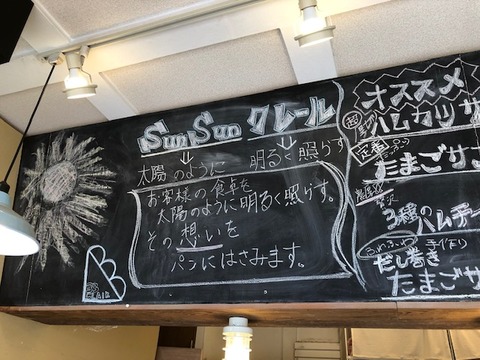 SunSun クレール
太陽のように 明るく照らす
お客様の食卓を
太陽のように明るく照らす。
その想いを
パンにはさみます。
オススメ
ハムカツサ
定番
たまごサ
贅沢
3種のハムチー
ふわふわ 手作り
だし巻き
たまごサ